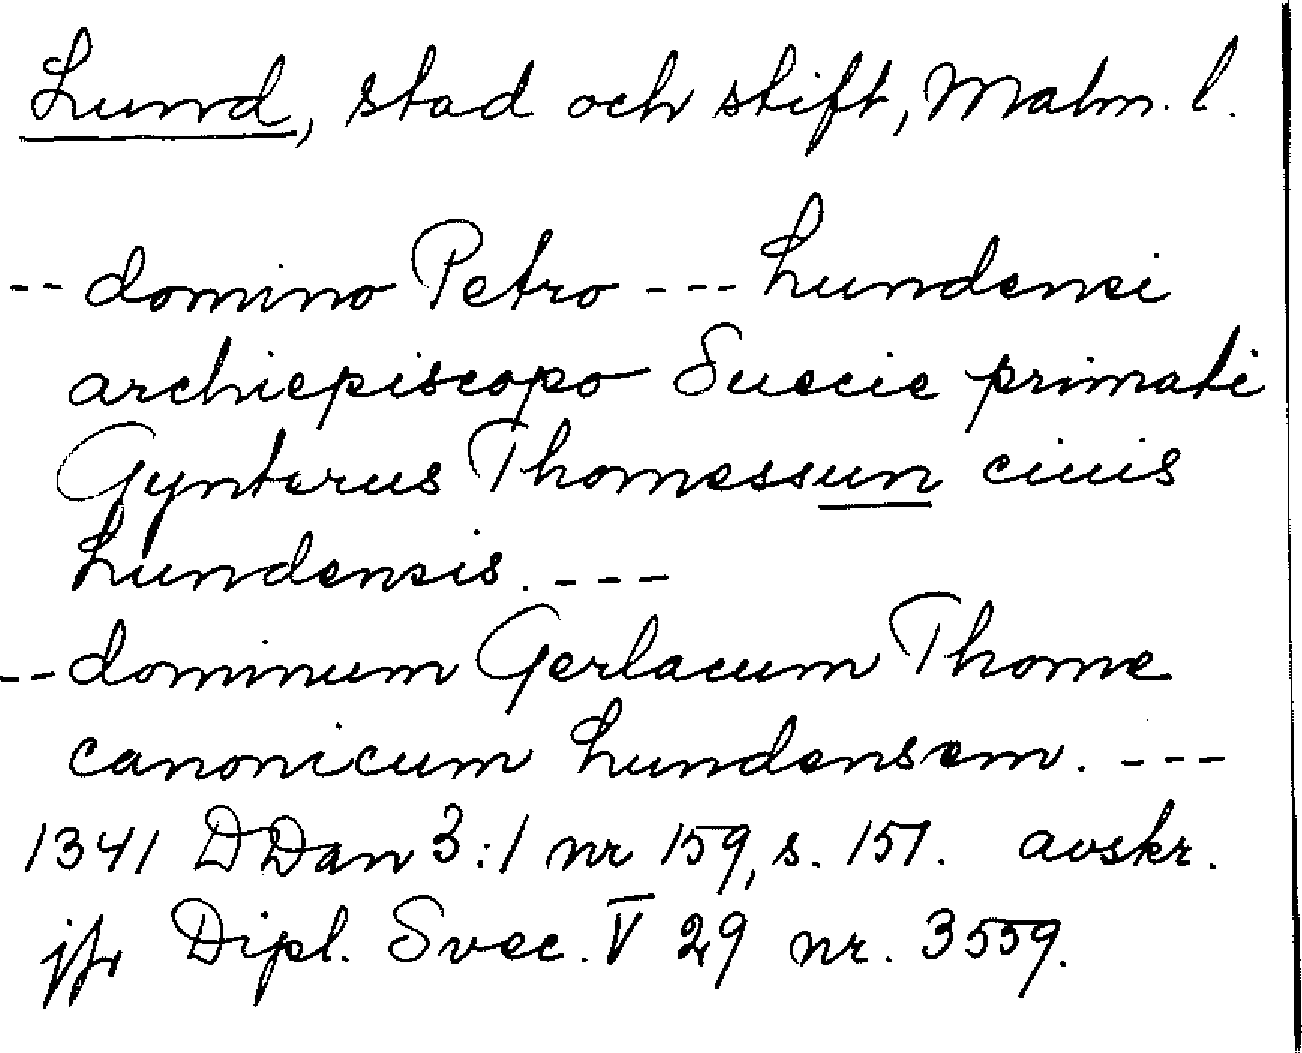 Lund, stad och stift, Malm. l.
-- domino Petro --- Lundensi
archiepiscopo Suecie primati
Gynterus Thomessun ciuis
Lundensis. ---
-- dominum Gerlacum Thome
canonicum Lundensem. ---
1341 DDan 3:1 nr 159, s. 151. avskr.
jfr Dipl. Svec. V 29 nr. 3559.